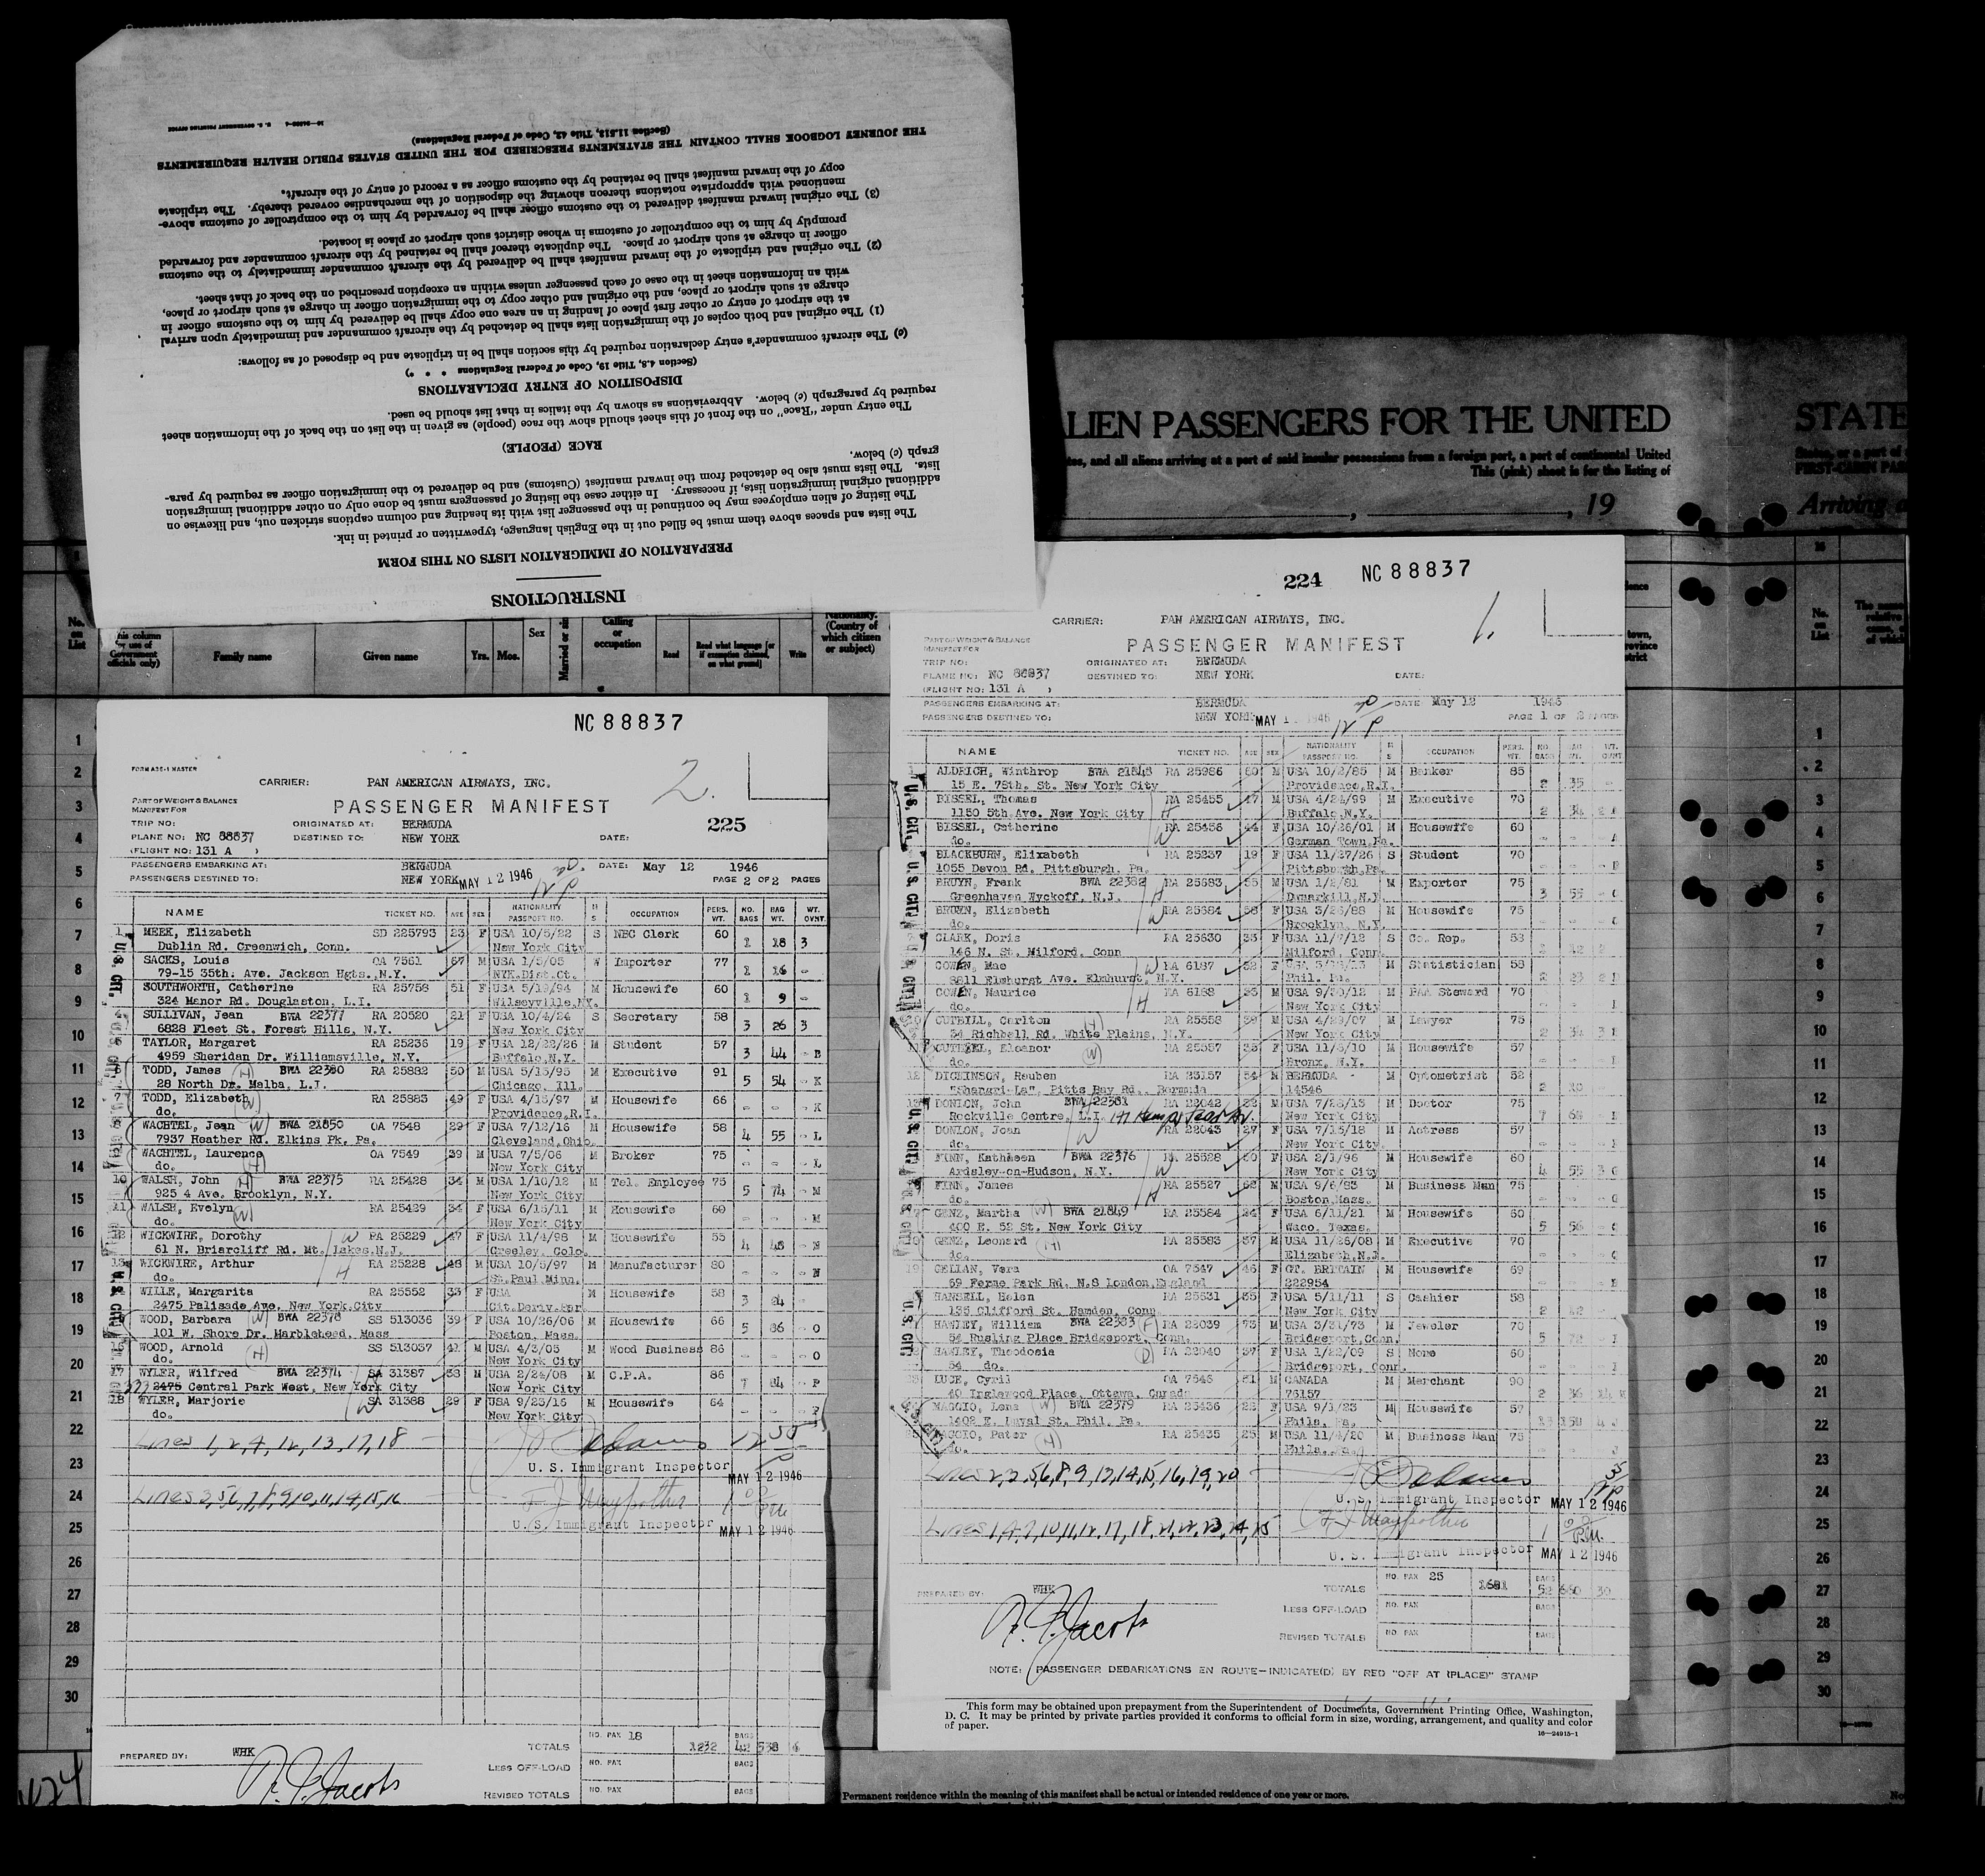 INSTRUCTIONS
PREPARATION OF IMMIGRATION LISTS ON THIS FORM
The lists and spaces above them must be filled out in the English language, typewritten or printed in ink.
The listing of alien employees may be continued in the passenger list with its heading and column captions stricken out, and likewise on
additional original immigration lists, if necessary. In either case the listing of passengers must be done only on other additional immigration
lists. The lists must also be detached from the inward manifest (Customs) and be delivered to the immigration officer as required by para-
graph (c) below.
RACE (PEOPLE)
The entry under "Race" on the front of this sheet should show the race (people) as given in the list on the back of the information sheet
required by paragraph (c) below. Abbreviations as shown by the italics in that list should be used.
DISPOSITION OF ENTRY DECLARATIONS
(Section 4.8, Title 19, Code of Federal Regulations * * *)
(c) The aircraft commander's entry declaration required by this section shall be in triplicate and be disposed of as follows:
(1) The original and both copies of the immigration lists shall be detached by the aircraft commander and immediately upon arrival
at the airport of entry or other first place of landing in an area one copy shall be delivered by him to the customs officer in
charge at such airport or place, and the original and other copy to the immigration officer in charge at such airport or place,
with an information sheet in the case of each passenger unless within an exception prescribed on the back of that sheet.
(2) The original and triplicate of the inward manifest shall be delivered by the aircraft commander immediately to the customs
officer in charge at such airport or place. The duplicate thereof shall be retained by the aircraft commander and forwarded
promptly by him to the comptroller of customs in whose district such airport or place is located.
(3) The original inward manifest delivered to the customs officer shall be forwarded by him to the comptroller of customs above-
mentioned with appropriate notations thereon showing the disposition of the merchandise covered thereby. The triplicate
copy of the inward manifest shall be retained by the customs officer as a record of entry of the aircraft.
THE JOURNEY LOGBOOK SHALL CONTAIN THE STATEMENTS PRESCRIBED FOR THE UNITED STATES PUBLIC HEALTH REQUIREMENTS
(Section 11.513, Title 42, Code of Federal Regulations)
U. S. GOVERNMENT PRINTING OFFICE
LIEN PASSENGERS FOR THE UNITED STATE
tes, and all aliens arriving at a port of said insular possessions from a foreign port, a part of continental United
This (pink) sheet is for the listing of
, 19
Arriving
No. on List
Family name Given name Yrs. Mos. Sex Calling or occupation Read Read what language [or if exemption claimed, on what ground] Write Nationality. (Country of which citizen or subject)
NC 88837
FORM A36-1 MASTER
CARRIER: PAN AMERICAN AIRWAYS, INC. 2.
PART OF WEIGHT & BALANCE MANIFEST FOR
PASSENGER MANIFEST
225
TRIP NO: ORIGINATED AT: BERMUDA
PLANE NO: NC 88837 DESTINED TO: NEW YORK DATE:
(FLIGHT NO: 131 A )
PASSENGERS EMBARKING AT: BERMUDA DATE: May 12 1946
PASSENGERS DESTINED TO: NEW YORK MAY 12 1946 PAGE 2 OF 2 PAGES
NAME TICKET NO. AGE SEX NATIONALITY PASSPORT NO. M S OCCUPATION PERS. WT. NO. BAGS BAG WT. WT. OVNT.
MEEK, Elizabeth SD 225793 23 F USA 10/5/22 S NBC Clerk 60 1 18 3
Dublin Rd. Greenwich, Conn. New York City
SACKS, Louis OA 7561 M USA 1/5/05 W Importer 77 1 16
79-15 35th. Ave. Jackson Hgts. N.Y. NYK.Dist.Ct.
SOUTHWORTH, Catherine RA 25758 51 F USA 5/19/94 M Housewife 60 1 9
324 Manor Rd. Douglaston, L.I. Wilseyville,NY.
SULLIVAN, Jean BWA 22377 RA 20520 21 F USA 10/4/24 S Secretary 58 3 26 3
6828 Fleet St. Forest Hills, N.Y. New York City
TAYLOR, Margaret RA 25236 19 F USA 12/22/26 M Student 57 3 44 - B
4959 Sheridan Dr. Williamsville, N.Y. Buffalo,N.Y.
TODD, James (H) BWA 22380 RA 25882 50 M USA 5/15/95 M Executive 91 5 54 - K
28 North Dr. Malba, L.I. Chicago, Ill.
TODD, Elizabeth (W) RA 25883 49 F USA 4/15/97 M Housewife 66 - - - K
do. Providence,R.I.
WACHTEL, Jean (W) BWA 21850 OA 7548 29 F USA 7/12/16 M Housewife 58 4 55 - L
7937 Heather Rd. Elkins Pk. Pa. Cleveland,Ohio
WACHTEL, Laurence (H) OA 7549 39 M USA 7/5/06 M Broker 75 - - - L
do. New York City
WALSH, John (H) BWA 22375 RA 25428 34 M USA 1/10/12 M Tel. Employee 75 5 74 - M
925 4 Ave. Brooklyn, N.Y. New York City
WALSH, Evelyn (W) RA 25429 34 F USA 6/15/11 M Housewife 60 - - - M
do. New York City
WICKWIRE, Dorothy W RA 25229 47 F USA 11/4/98 M Housewife 55 4 48 - N
61 N. Briarcliff Rd. Mt. Lakes,N.J. Greeley, Colo.
WICKWIRE, Arthur H RA 25228 48 M USA 10/5/97 M Manufacturer 80 - - - N
do. St.Paul Minn.
WILLE, Margarita RA 25552 33 F USA M Housewife 58 3 24 -
2475 Palisade Ave. New York City
WOOD, Barbara (W) BWA 22378 SS 513036 39 F USA 10/26/06 M Housewife 66 5 86 - O
101 W. Shore Dr. Marblehead, Mass Boston, Mass.
WOOD, Arnold (H) SS 513037 41 M USA 4/3/05 M Wood Business 86 - - - O
do. New York City
WYLER, Wilfred BWA 22374 SA 31387 38 M USA 2/24/08 M C.P.A. 86 7 84 - P
2475 Central Park West, New York City New York City
WYLER, Marjorie W SA 31388 29 F USA 9/23/16 M Housewife 64 - - - P
do. New York City
Lines 1,2,4,12,13,17,18
U.S. Immigrant Inspector MAY 12 1946
Lines 3,5,6,7,8,9,10,11,14,15,16
U.S. Immigrant Inspector MAY 12 1946
PREPARED BY: WHK TOTALS NO. PAX 18 1232 BAGS 42 538 6
LESS OFF-LOAD NO. PAX BAGS
REVISED TOTALS NO. PAX BAGS
224 NC 88837
CARRIER: PAN AMERICAN AIRWAYS, INC. 1.
PART OF WEIGHT & BALANCE MANIFEST FOR
PASSENGER MANIFEST
TRIP NO: ORIGINATED AT: BERMUDA
PLANE NO: NC 88837 DESTINED TO: NEW YORK DATE:
(FLIGHT NO: 131 A )
PASSENGERS EMBARKING AT: BERMUDA DATE May 12 1946
PASSENGERS DESTINED TO: NEW YORK MAY 12 1946 PAGE 1 OF 2 PAGES
NAME TICKET NO. AGE SEX NATIONALITY PASSPORT NO. M S OCCUPATION PERS. WT. NO. BAGS BAG WT. WT. OVNT
ALDRICH, Winthrop BWA 21848 RA 25986 60 M USA 10/2/85 M Banker 85 2 35 -
15 E. 78th. St. New York City Providence,R.I.
BISSEL, Thomas H RA 25455 47 M USA 4/24/99 M Executive 70 2 34
1150 5th.Ave. New York City Buffalo,N.Y.
BISSEL, Catherine W RA 25456 44 F USA 10/26/01 M Housewife 60
do. German Town,Pa.
BLACKBURN, Elizabeth RA 25237 19 F USA 11/27/26 S Student 70
1055 Devon Rd. Pittsburgh, Pa. Pittsburgh,Pa.
BRUYN, Frank BWA 22382 H RA 25683 65 M USA 1/2/81 M Exporter 75 3 55 -
Greenhaven Wyckoff, N.J.
BRUYN, Elizabeth W RA 25684 58 F USA 3/26/88 M Housewife 75
do. Brooklyn, N.Y.
CLARK, Doris RA 25630 33 F USA 11/7/12 S Co. Rep. 53
146 N. St. Milford, Conn Milford, Conn.
COWEN, Mae W RA 6187 M Statistician 58
8811 Elmhurst Ave. Elmhurst, N.Y. Phil. Pa.
COWEN, Maurice H RA 6188 33 M USA 9/30/12 M PAA Steward 70
do. New York City
CUTBILL, Carlton (H) RA 25556 39 M USA 4/29/07 M Lawyer 75
34 Richbell Rd. White Plains, N.Y. New York City
Eleanor (W) RA 25557 35 F USA 11/5/10 M Housewife 57
do. Bronx, N.Y.
DICKINSON, Reuben RA 23157 54 M BERMUDA - M Optometrist 52
"Shangri-La", Pitts Bay Rd. Bermuda 14546
DONLON, John BWA 22381 RA 22042 32 M USA M Doctor 75
Rockville Centre, L.I. New York City
DONLON, Joan W RA 22043 27 F USA 7/15/18 M Actress 57
do. New York City
FINN, Kathleen BWA 22376 W RA 25528 50 F USA 2/1/96 M Housewife 60
Ardsley-on-Hudson, N.Y. New York City
FINN, James H RA 25527 62 M USA 9/6/83 M Business Man 75
do. Boston,Mass.
GENZ, Martha (W) BWA 21849 RA 25584 24 F USA 6/11/21 M Housewife 60 5 56
400 E. 52 St. New York City Waco, Texas.
GENZ, Leonard (H) RA 25583 37 M USA 11/26/08 M Executive 70
do. Elizabeth,N.J.
Vera OA 7547 46 F GT. BRITAIN M Housewife 69
69 Ferme Park Rd. N.S London,England 222954
HANSELL, Helen RA 25631 35 F USA 5/11/11 S Cashier 58
135 Clifford St. Hamden, Conn New York City
HAWLEY, William BWA 22383 (F) RA 22039 73 M USA 3/31/73 M Jeweler 70
54 Rusling Place Bridgeport, Conn. Bridgeport,Conn.
HAWLEY, Theodosia (D) RA 22040 37 F USA 1/22/09 S None 60
54 do. Bridgeport, Conn.
LUCE, Cyril OA 7546 51 M CANADA M Merchant 90 2 36
40 Inglewood Place, Ottawa, Canada 76157
MAGGIO, Lena (W) BWA 22379 RA 25436 22 F USA 9/1/23 M Housewife 57
1402 E. Duval St. Phil. Pa. Phila. Pa.
MAGGIO, Peter (H) RA 25435 25 M USA 11/4/20 M Business Man 75
do. Phila. Pa.
Lines 2,3,5,6,8,9,13,14,15,16,19,20
U.S. Immigrant Inspector MAY 12 1946
Lines 1,4,7,10,11,12,17,18,21,22,23,24,25
U.S. Immigrant Inspector MAY 12 1946
PREPARED BY: WHK TOTALS NO. PAX 25 1681 BAGS 52 660 30
LESS OFF-LOAD NO. PAX BAGS
REVISED TOTALS NO. PAX BAGS
NOTE: PASSENGER DEBARKATIONS EN ROUTE—INDICATE(D) BY RED "OFF AT (PLACE)" STAMP
This form may be obtained upon prepayment from the Superintendent of Documents, Government Printing Office, Washington,
D. C. It may be printed by private parties provided it conforms to official form in size, wording, arrangement, and quality and color
of paper.
16—24915-1
Permanent residence within the meaning of this manifest shall be actual or intended residence of one year or more.